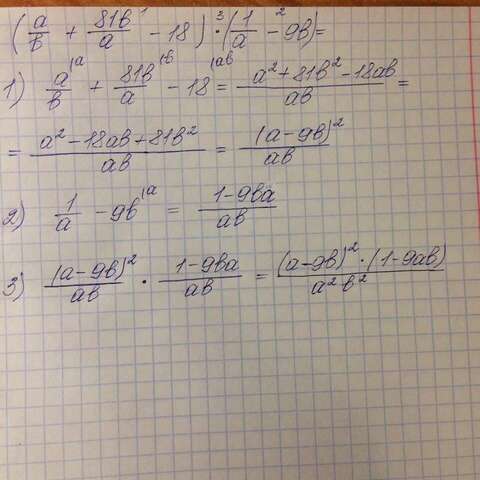 (a/b + 81b/a - 18) · (1/a - 9b) = 1 3 2
1) a/b |a + 81b/a |b - 18 |ab = (a² + 81b² - 18ab)/(ab) =
= (a² - 18ab + 81b²)/(ab) = (a - 9b)²/(ab)
2) 1/a - 9b |a = (1 - 9ba)/(ab)
3) (a - 9b)²/(ab) · (1 - 9ba)/(ab) = ((a - 9b)² · (1 - 9ab))/(a² b²)